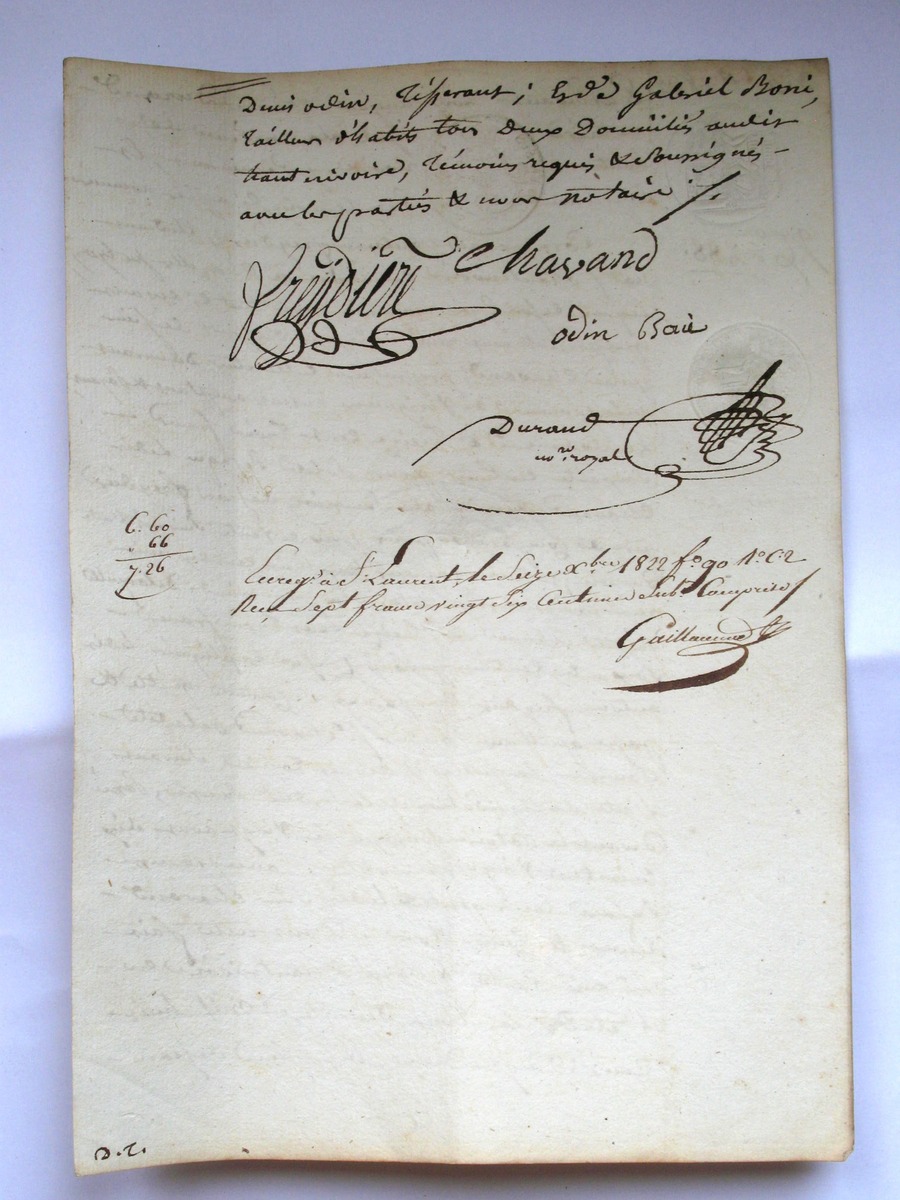 Denis odin, Tisserant; & de Gabriel Boni,
Tailleur d'habits tous deux Domiciliés audit
hauterivoire, Témoins requis & Soussignés -
avec les parties & nous notaire ./.
Freydière Chavand
odin Boni
Durand
nore royal
6. 60
" 66
7. 26
Enregé à St Laurent, le Seize Xbre 1822 fo 90 No C2
Reçu Sept francs vingt Six Centimes Subon Comprise
Guillaume
D. T.